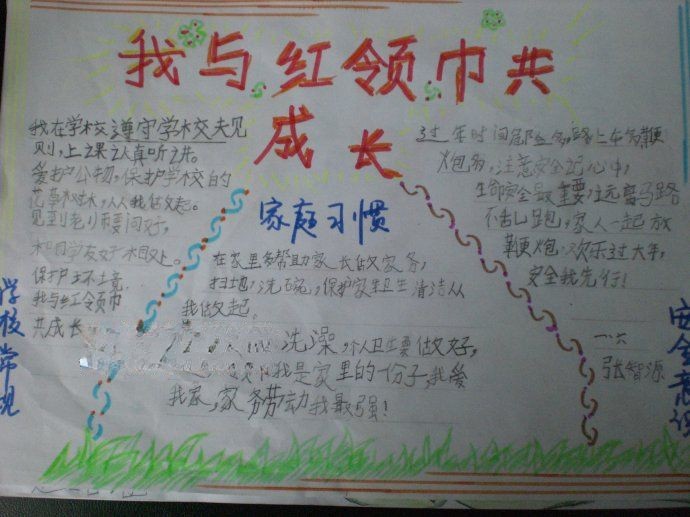 我与红领巾共
成长
我在学校遵守学校夫见
则,上课认真听讲。
爱护公物,保护学校的
花草树木,从我做起。
见到老师要问好,
和同学友好相处。
保护环境
我与红领巾
共成长
学校常规
家庭习惯
在家里多帮助家长做家务,
扫地,洗碗,保护家里卫生清洁从
我做起。
洗澡,个人卫生要做好,
我是家里的一份子我爱
我家,家务劳动我最强!
过年时间到,路上车多鞭
炮多,注意安全记心中,
生命安全最重要,过马路
不乱跑,家人一起放
鞭炮,欢乐过大年,
安全我先行!
一六
张智源
安全意识